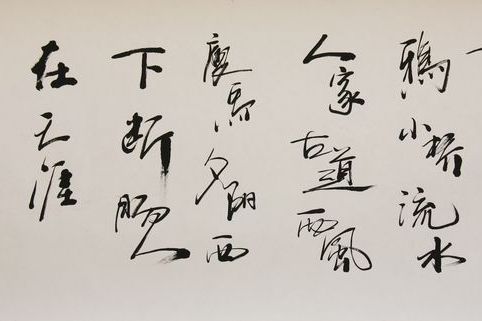 鴉小橋流水
人家古道西風
瘦馬夕陽西
下斷腸人
在天涯